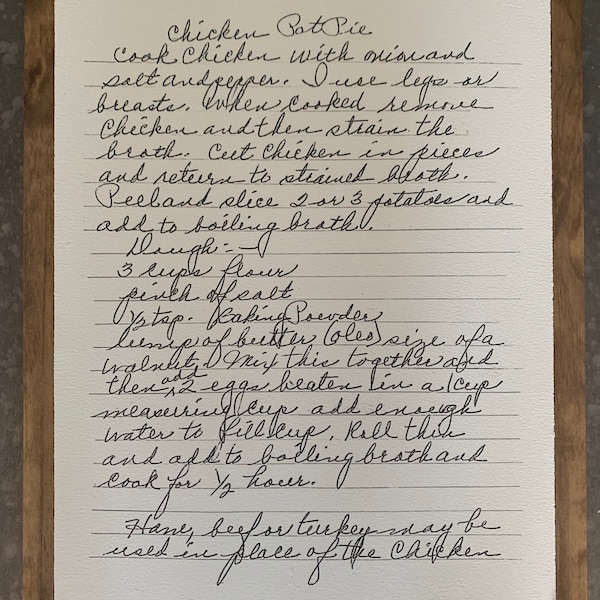 Chicken Pot Pie
Cook Chicken with onion and
salt and pepper. I use legs or
breasts. When Cooked remove
Chicken and then strain the
broth. Cut Chicken in pieces
and return to strained broth.
Peel and slice 2 or 3 potatoes and
add to boiling broth.
Dough:-
3 cups flour
pinch of salt
1/2 tsp. Baking Powder
lump of butter (oleo) size of a
walnut. Mix this together and
then add 2 eggs beaten in a 1 cup
measuring cup add enough
water to fill cup. Roll thin
and add to boiling broth and
cook for 1/2 hour.
Ham, beef or turkey may be
used in place of the Chicken